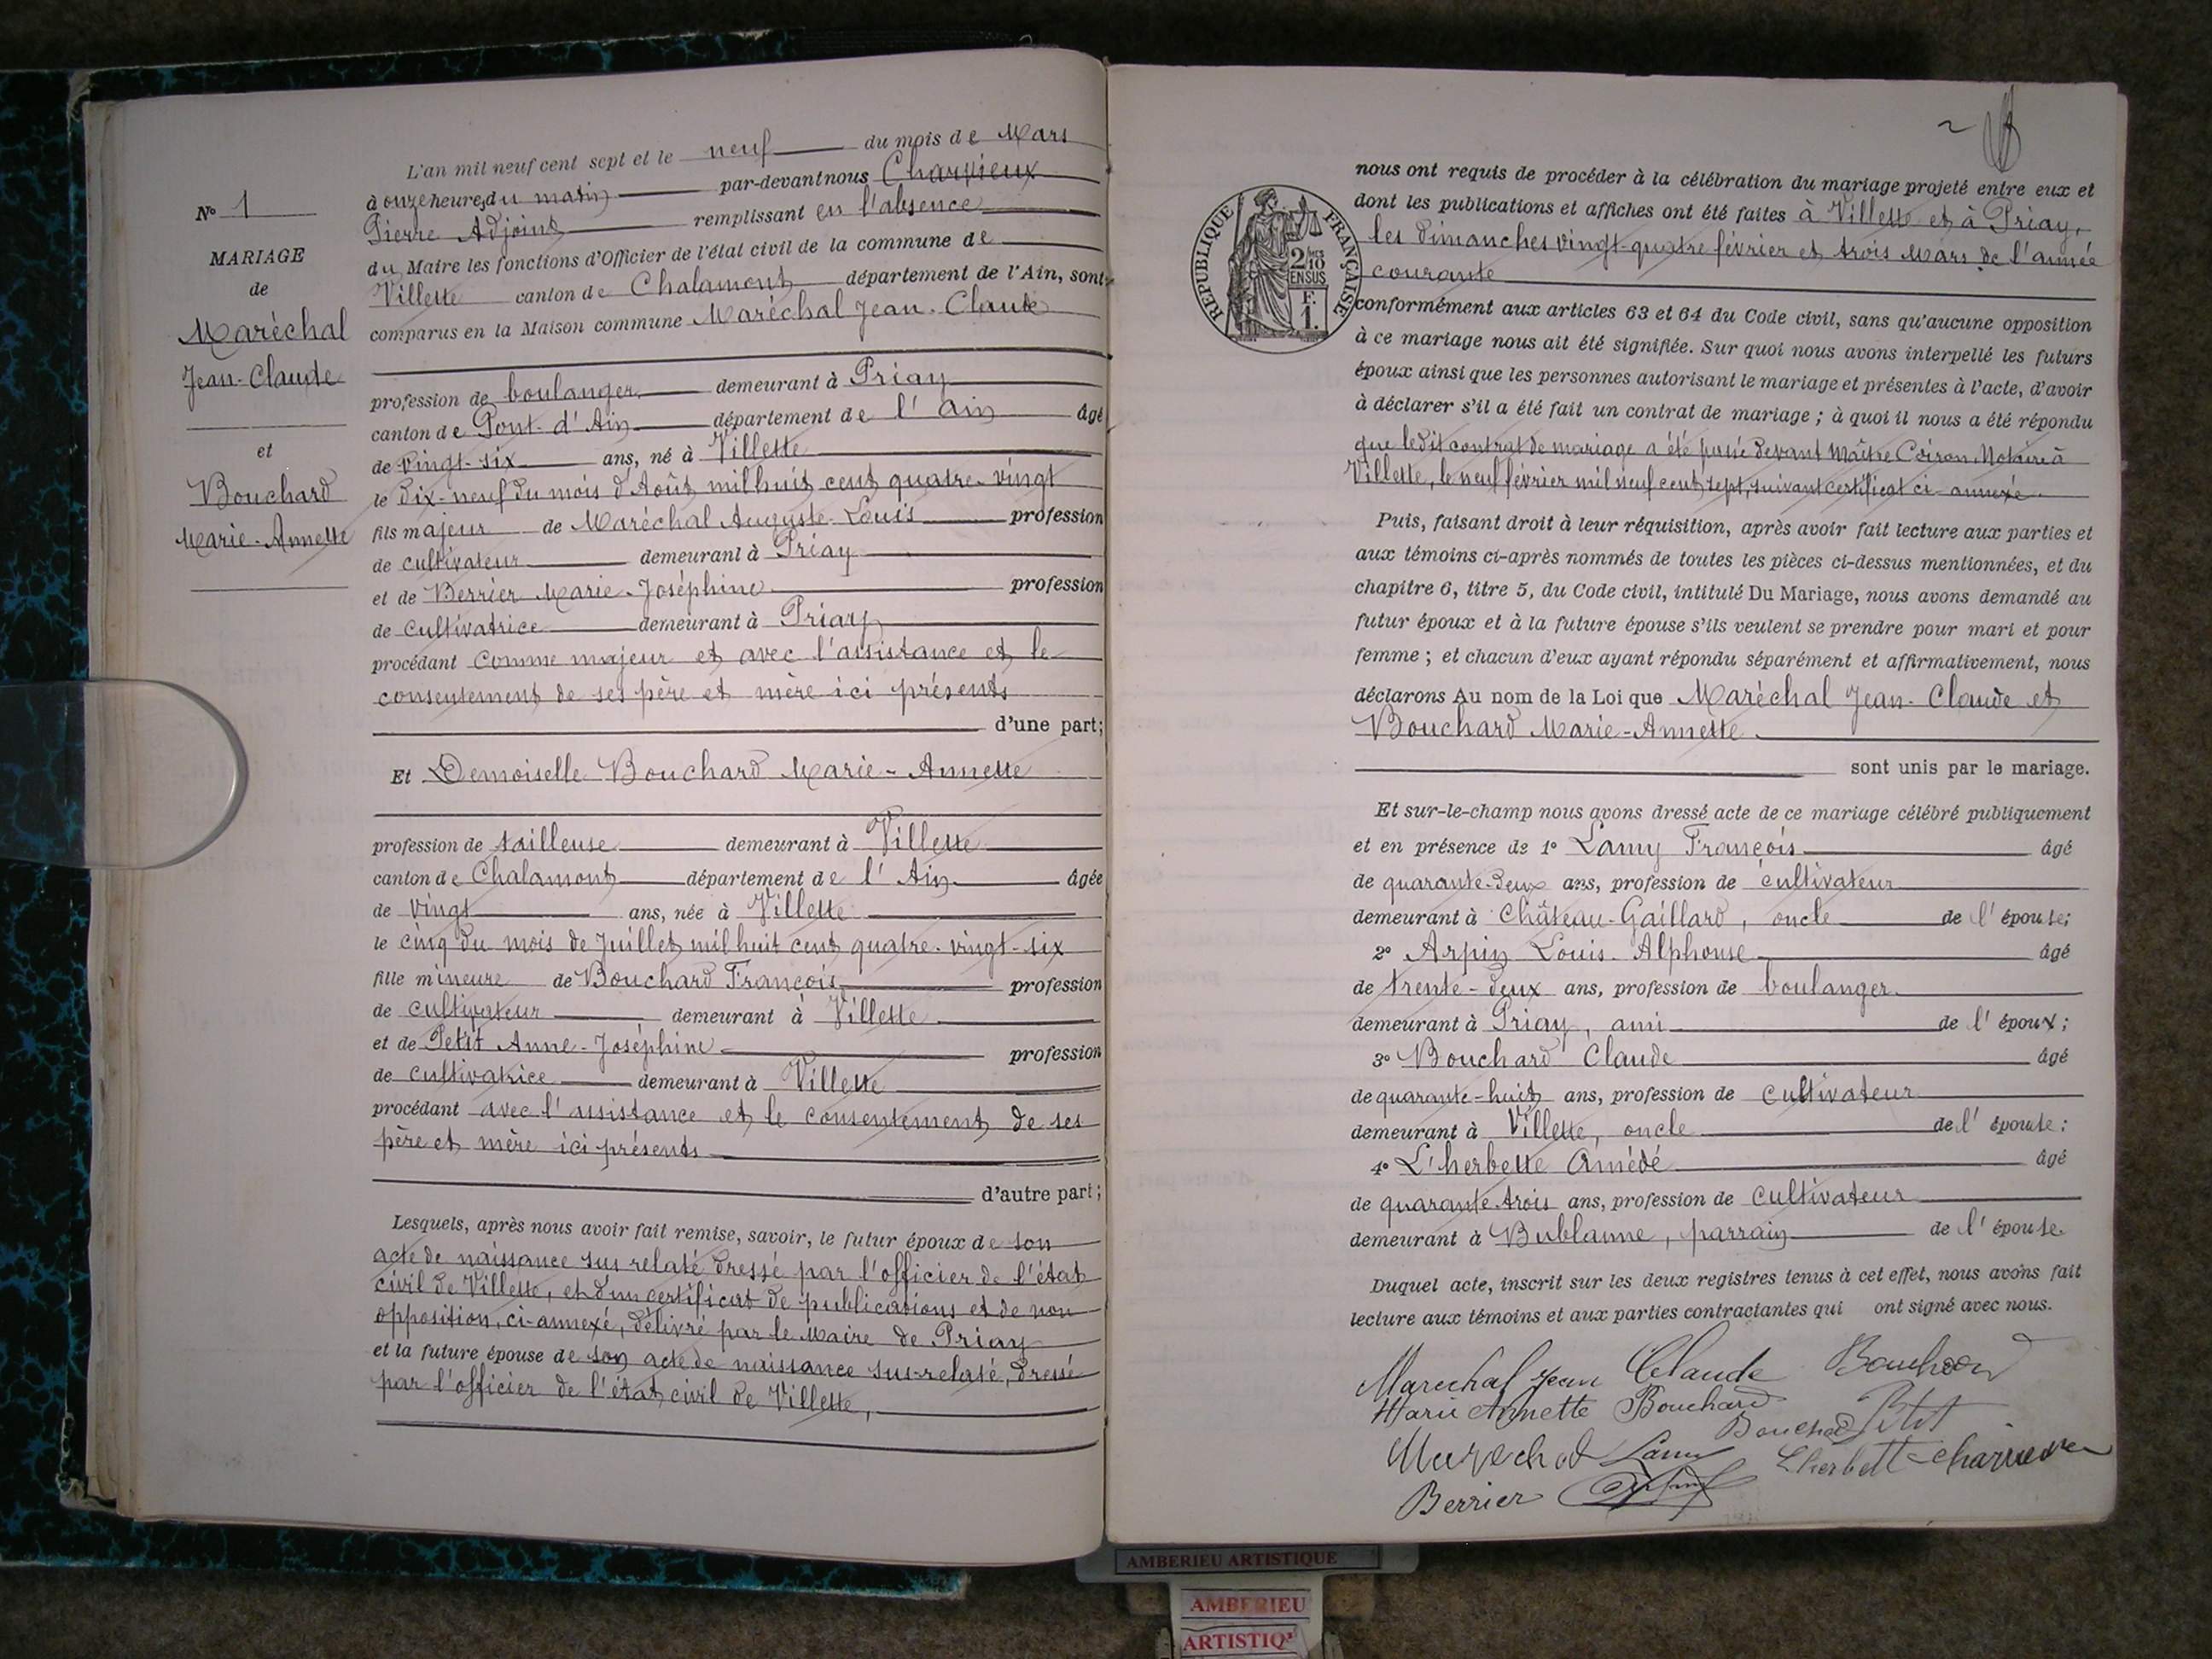 N° 1
MARIAGE
de
Maréchal
Jean-Claude
et
Bouchard
Marie-Annette
L'an mil neuf cent sept et le neuf du mois de Mars
à onze heures du matin par-devant nous Charvieux
Pierre Adjoint remplissant en l'absence
du Maire les fonctions d'Officier de l'état civil de la commune de
Villette canton de Chalamont département de l'Ain, sont
comparus en la Maison commune Maréchal Jean-Claude
profession de boulanger demeurant à Priay
canton de Pont-d'Ain département de l'Ain âgé
de vingt-six ans, né à Villette
le dix-neuf du mois d'Août mil huit cent quatre-vingt
fils majeur de Maréchal Auguste-Louis profession
de cultivateur demeurant à Priay
et de Berrier Marie-Joséphine profession
de cultivatrice demeurant à Priay
procédant comme majeur et avec l'assistance et le
consentement de ses père et mère ici présents
d'une part;
Et Demoiselle Bouchard Marie-Annette
profession de tailleuse demeurant à Villette
canton de Chalamont département de l'Ain âgée
de vingt ans, née à Villette
le cinq du mois de Juillet mil huit cent quatre-vingt-six
fille mineure de Bouchard François profession
de cultivateur demeurant à Villette
et de Petit Anne-Joséphine profession
de cultivatrice demeurant à Villette
procédant avec l'assistance et le consentement de ses
père et mère ici présents
d'autre part;
Lesquels, après nous avoir fait remise, savoir, le futur époux de son
acte de naissance sus relaté dressé par l'officier de l'état
civil de Villette, et d'un certificat de publications et de non
opposition, ci-annexé, délivré par le Maire de Priay
et la future épouse de son acte de naissance sus-relaté, dressé
par l'officier de l'état civil de Villette,
2
REPUBLIQUE FRANÇAISE
2/10
EN SUS
F.
1.
nous ont requis de procéder à la célébration du mariage projeté entre eux et
dont les publications et affiches ont été faites à Villette et à Priay,
les dimanches vingt-quatre février et trois Mars de l'année
courante
conformément aux articles 63 et 64 du Code civil, sans qu'aucune opposition
à ce mariage nous ait été signifiée. Sur quoi nous avons interpellé les futurs
époux ainsi que les personnes autorisant le mariage et présentes à l'acte, d'avoir
à déclarer s'il a été fait un contrat de mariage; à quoi il nous a été répondu
que ledit contrat de mariage a été passé devant Maître Coiron Notaire à
Villette, le neuf février mil neuf cent sept, suivant certificat ci-annexé.
Puis, faisant droit à leur réquisition, après avoir fait lecture aux parties et
aux témoins ci-après nommés de toutes les pièces ci-dessus mentionnées, et du
chapitre 6, titre 5, du Code civil, intitulé Du Mariage, nous avons demandé au
futur époux et à la future épouse s'ils veulent se prendre pour mari et pour
femme; et chacun d'eux ayant répondu séparément et affirmativement, nous
déclarons Au nom de la Loi que Maréchal Jean-Claude et
Bouchard Marie-Annette
sont unis par le mariage.
Et sur-le-champ nous avons dressé acte de ce mariage célébré publiquement
et en présence de 1° Lamy François âgé
de quarante-deux ans, profession de cultivateur
demeurant à Château-Gaillard, oncle de l'épouse;
2° Arpin Louis-Alphonse âgé
de trente-deux ans, profession de boulanger
demeurant à Priay, ami de l'époux;
3° Bouchard Claude âgé
de quarante-huit ans, profession de cultivateur
demeurant à Villette, oncle de l'épouse;
4° L'herbette Amédé âgé
de quarante-trois ans, profession de cultivateur
demeurant à Bublanne, parrain de l'épouse.
Duquel acte, inscrit sur les deux registres tenus à cet effet, nous avons fait
lecture aux témoins et aux parties contractantes qui ont signé avec nous.
Marechal Jean Claude Bouchard
Marie Annette Bouchard
Bouchard Petit
Marechal Lamy Lherbette
Berrier
AMBERIEU ARTISTIQUE
AMBERIEU
ARTISTIQ